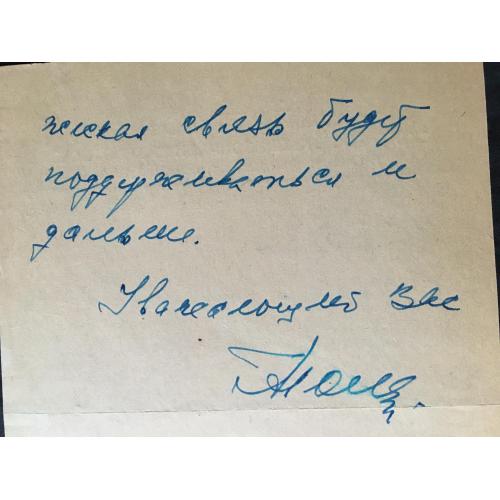 ческая связь будет
поддерживаться и
дальше.
Уважающий Вас